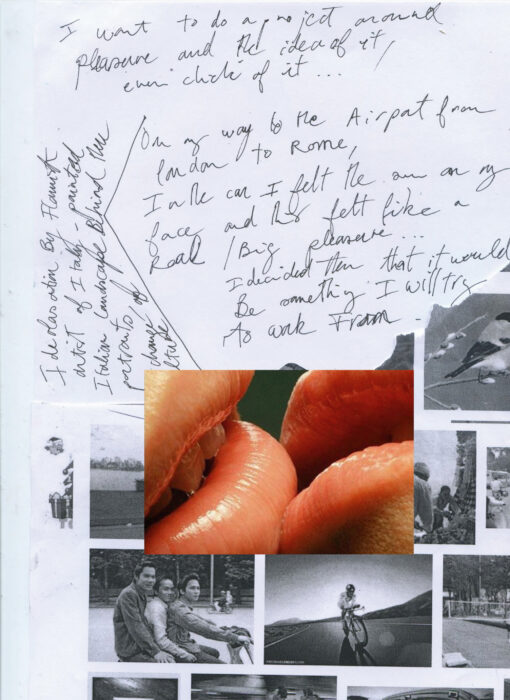 I want to do a project around
pleasure and the idea of it,
even cliché of it ...
On my way to the Airport from
London to Rome,
In the car I felt the sun on my
face and this felt like a
Real / Big pleasure ...
I decided then that it would
Be something I will try
to work From.
By Flemish
artist of Italy - painted
Italian landscape Behind the
portraits, of
change